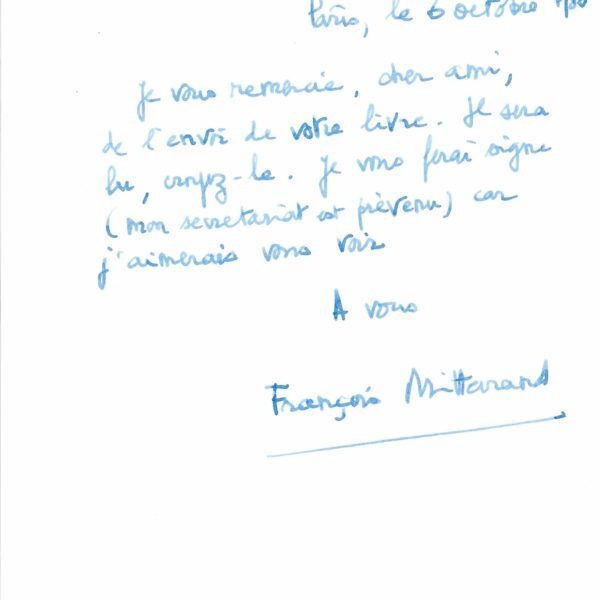 Paris, le 6 octobre
Je vous remercie, cher ami,
de l'envoi de votre livre. Il sera
lu, croyez-le. Je vous ferai signe
(mon secrétariat est prévenu) car
j'aimerais vous voir
A vous
François Mitterrand